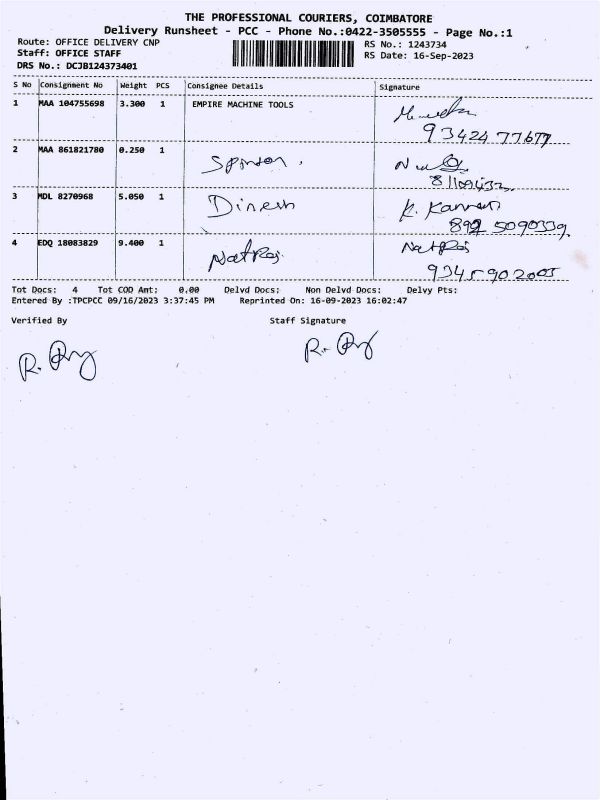 THE PROFESSIONAL COURIERS, COIMBATORE
Delivery Runsheet - PCC - Phone No.:0422-3505555 - Page No.:1
Route: OFFICE DELIVERY CNP
Staff: OFFICE STAFF
DRS No.: DCJB124373401
RS No.: 1243734
RS Date: 16-Sep-2023
S No Consignment No Weight PCS Consignee Details Signature
1 MAA 104755698 3.300 1 EMPIRE MACHINE TOOLS
93424 77677
2 MAA 861821780 0.250 1
3 MDL 8270968 5.050 1 Dinesh K. Kannan
4 EDQ 18083829 9.400 1 NatRaj NatRaj
Tot Docs: 4 Tot COD Amt: 0.00 Delvd Docs: Non Delvd Docs: Delvy Pts:
Entered By :TPCPCC 09/16/2023 3:37:45 PM Reprinted On: 16-09-2023 16:02:47
Verified By Staff Signature